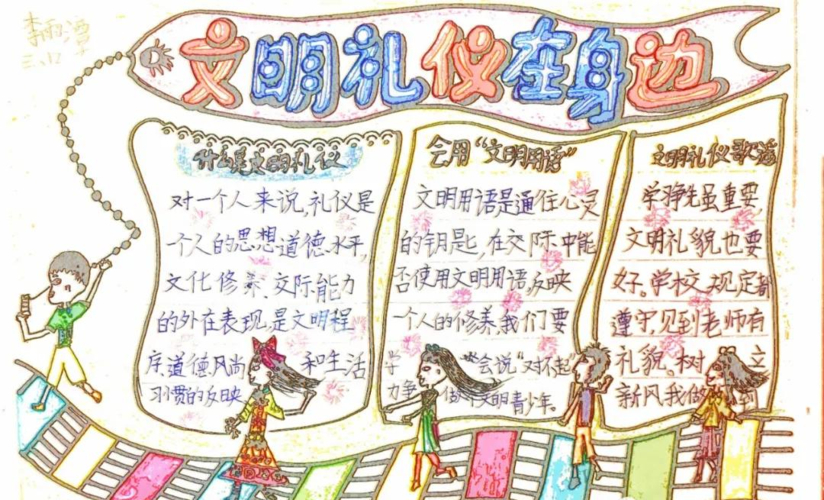 李雨潭
文明礼仪在身边
什么是文明礼仪
对一个人来说,礼仪是
一个人的思想道德水平,
文化修养、交际能力
的外在表现,是文明程
序、道德风尚和生活
习惯的反映
会用“文明用语”
文明用语是通往心灵
的钥匙,在交际中能
否使用文明用语,反映
一个人的修养,我们要
学会说“对不起”
力争做个文明青少年。
文明礼仪歌谣
学习争先虽重要
文明礼貌也要
好。学校规定都
遵守,见到老师有
礼貌。树立
新风我做到